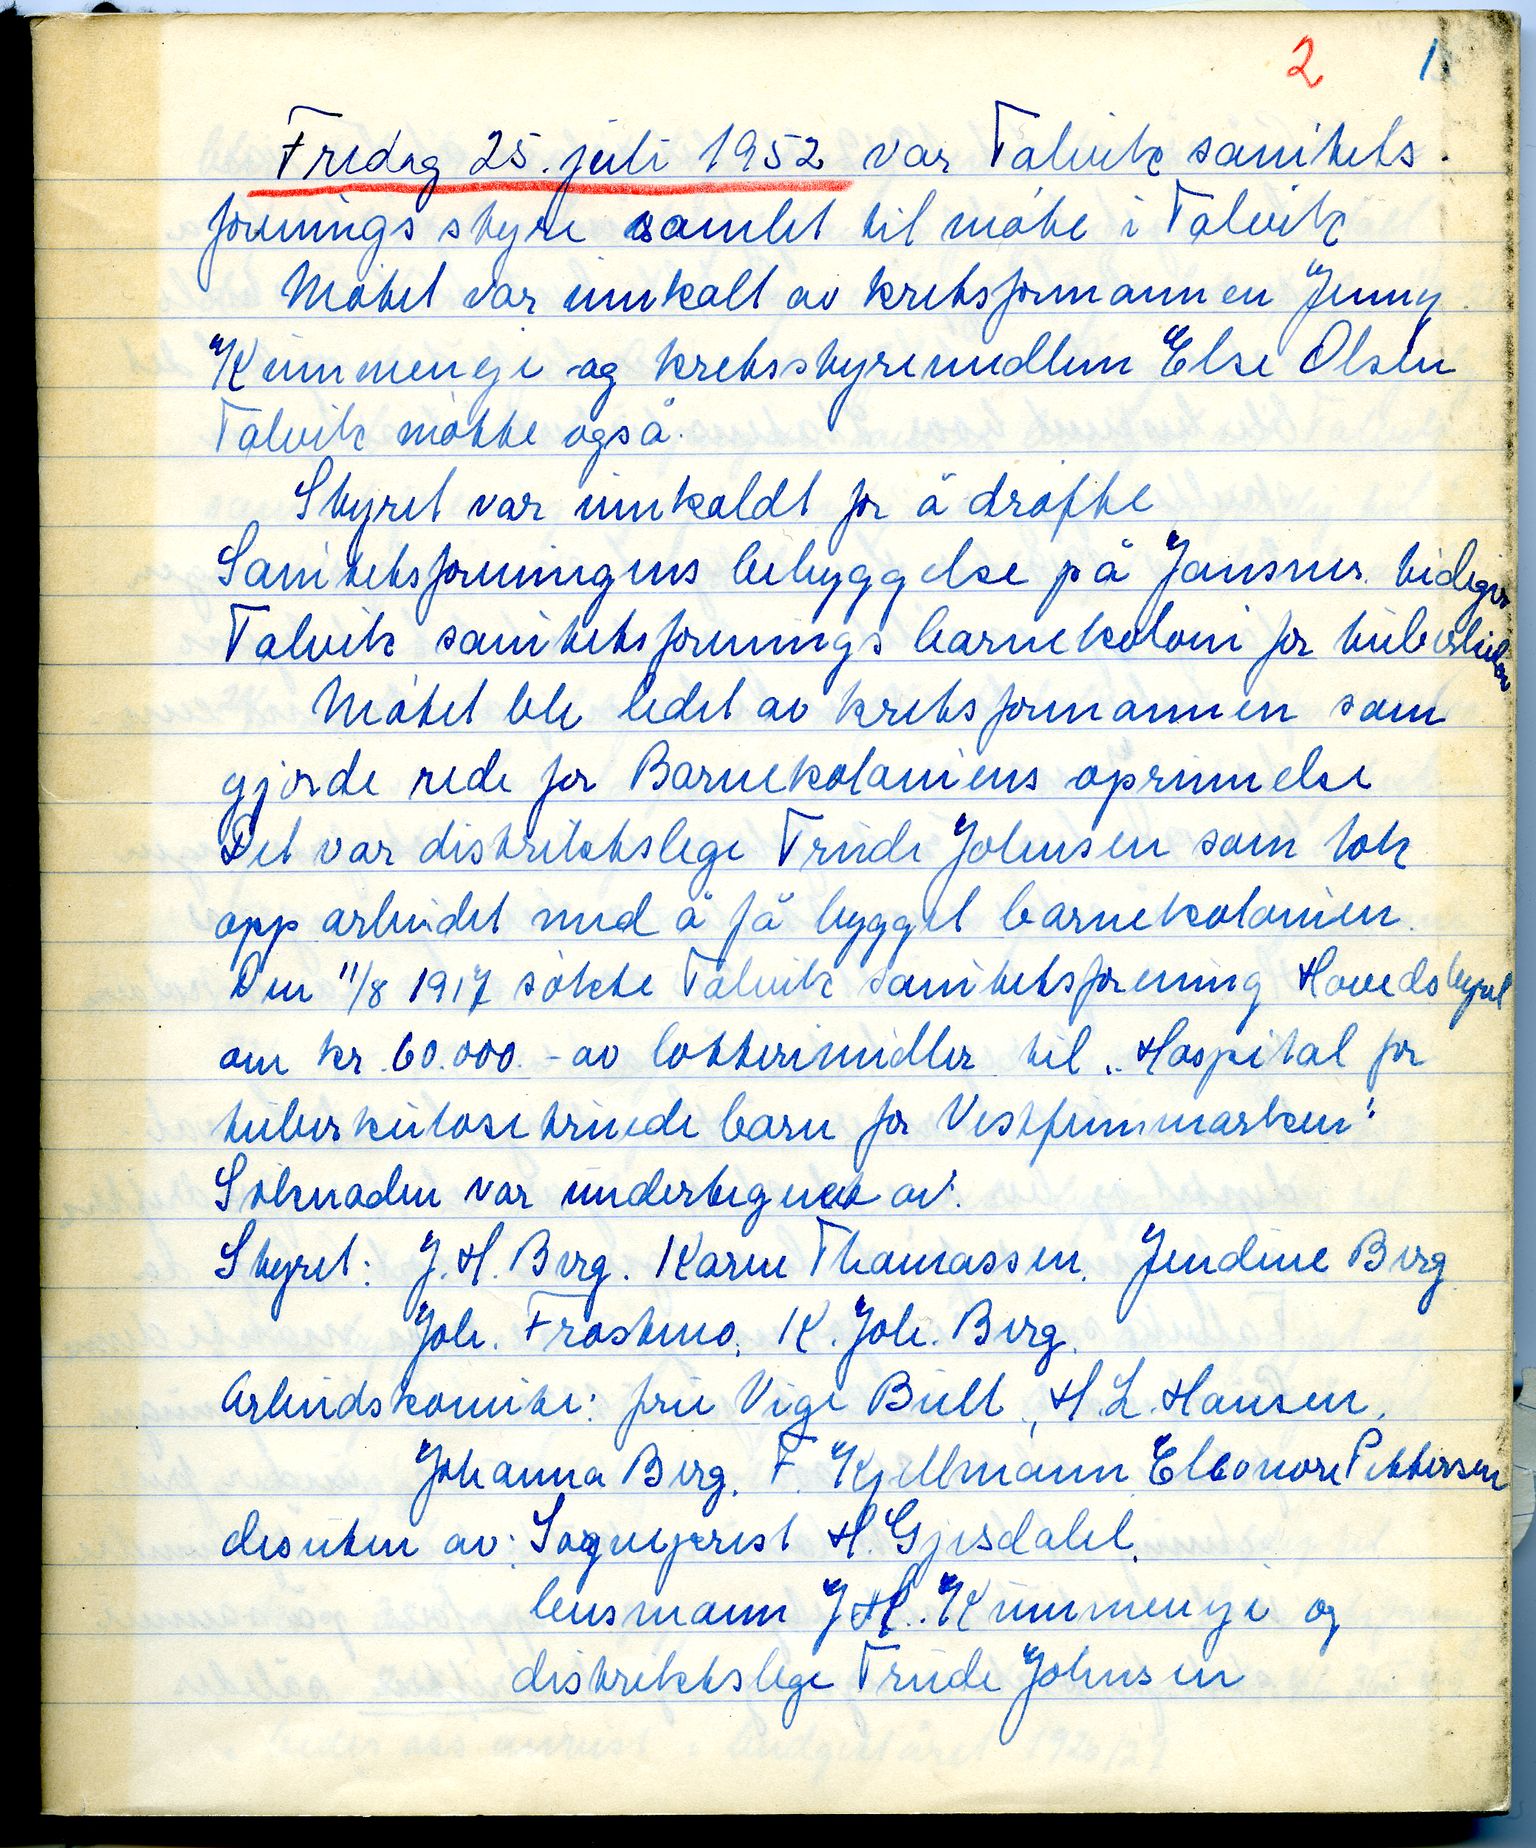 2 1
Fredag 25. juli 1952 var Talvik sanitets
forenings styre samlet til møte i Talvik
Møtet var innkalt av kretsformannen Jenny
Kummeneje og kretsstyremedlem Else Olsen
Talvik møtte også.
Styret var innkaldt for å drøfte
Sanitetsforeningens bebyggelse på Jansnes. tidligere
Talvik sanitetsforenings barnekoloni for tuberkuløse
Møtet ble ledet av kretsformannen som
gjorde rede for Barnekoloniens oprinnelse
Det var distriktslege Trude Johnsen som tok
opp arbeidet med å få bygget barnekolonien.
Den 11/8 1917 søkte Talvik sanitetsforening Hovedstyret
om kr. 60.000.- av lotterimidler til "Hospital for
tuberkuløsetruede barn for Vestfinnmarken".
Søknaden var undertegnet av:
Styret: J. H. Berg. Karen Thomassen. Jendine Berg
Joh. Frostmo. K. Joh. Berg.
Arbeidskomite: fru Vige Bull, H. L. Hansen,
Johanna Berg. F. Kjellmann Eleonore Pettersen
desuten av: Sogneprest H. Gjesdahl.
lensmann J. H. Kummeneje og
distriktslege Trude Johnsen